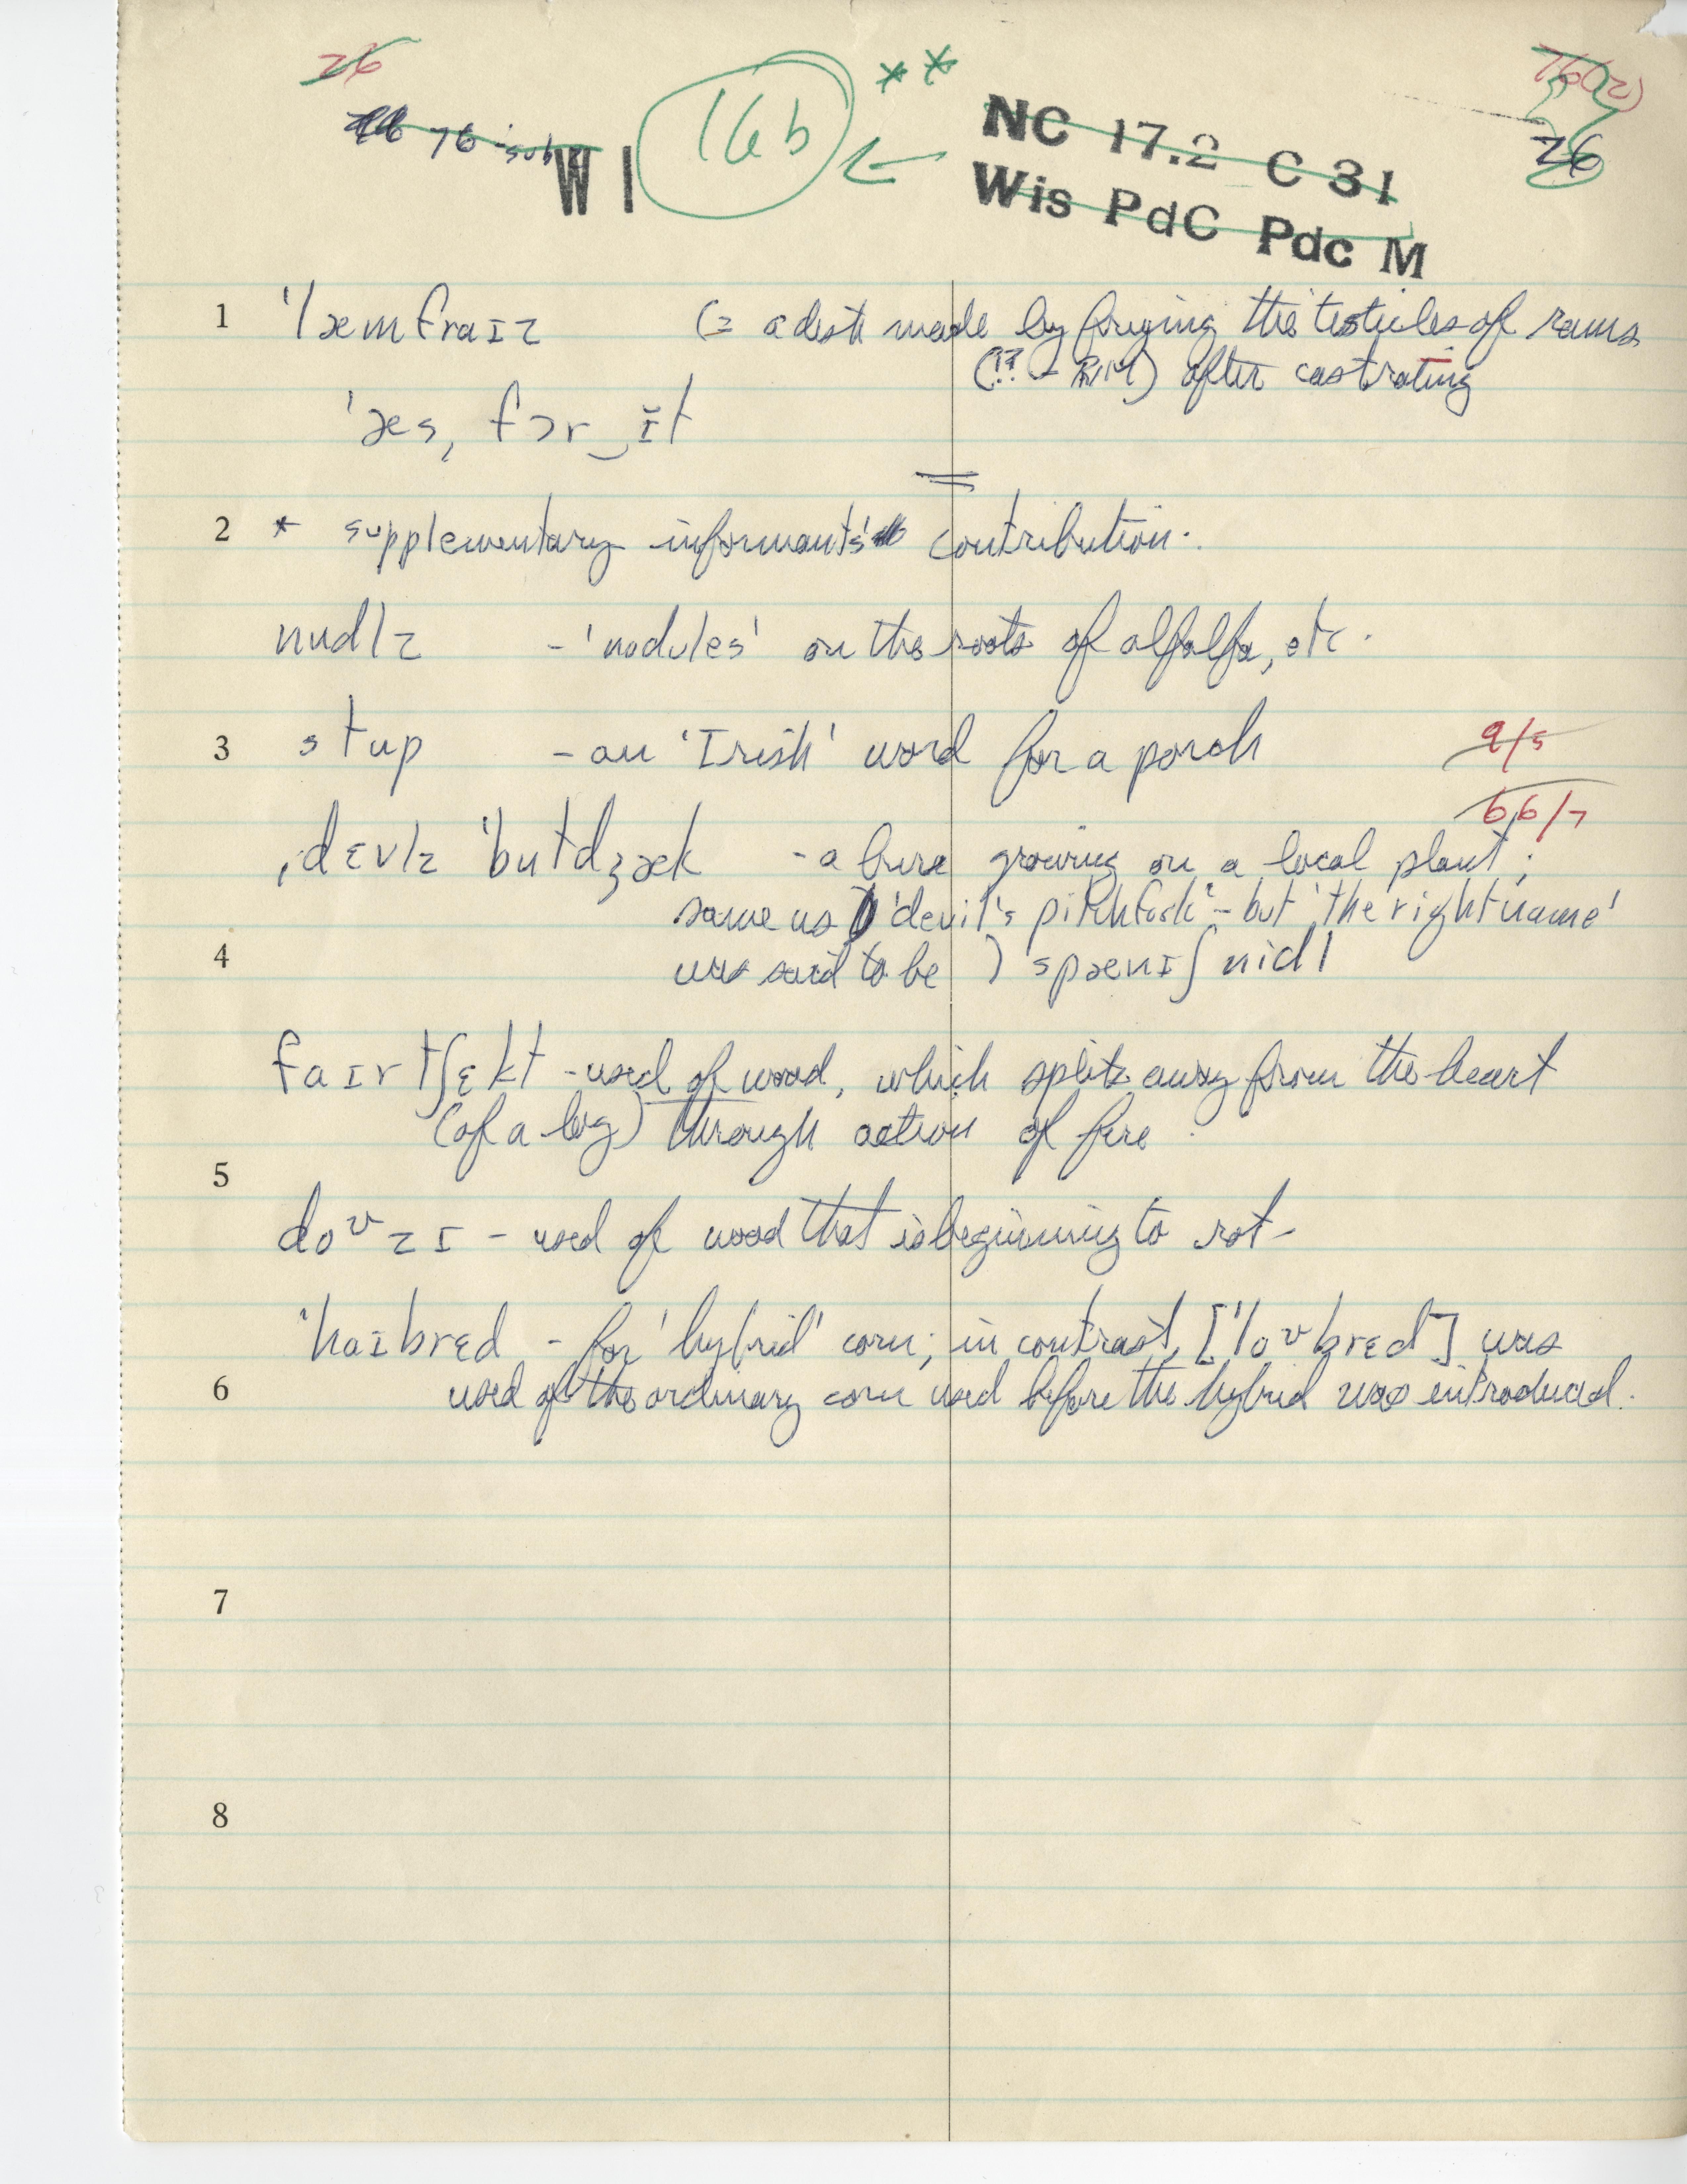 26
76
76 sub
W I
16b
**
NC 17.2 C 31
Wis PdC Pdc M
76
1 ˈlæmfraɪz (= a dish made by frying the testicles of rams
(?? – ) after castrating
ˈæs, fɔr‿ɪ̆t
2 * supplementary informant's contribution.
nudlz – 'nodules' on the roots of alfalfa, etc.
3 stup – an 'Irish' word for a porch
9/5
66/7
ˌdɛvlz ˈbutdʒæk – a burr growing on a local plant;
same as 'devil's pitchfork' – but 'the right name'
4 was said to be ) spænɪʃ nidl
faɪrtʃɛkt – used of wood, which splits away from the heart
(of a log) through action of fire.
5
doᶷzɪ – used of wood that is beginning to rot –
ˈhaɪbrɛd – for 'hybrid' corn; in contrast, [ˈloᶷbrɛd] was
6 used of the ordinary corn used before the hybrid was introduced.
7
8